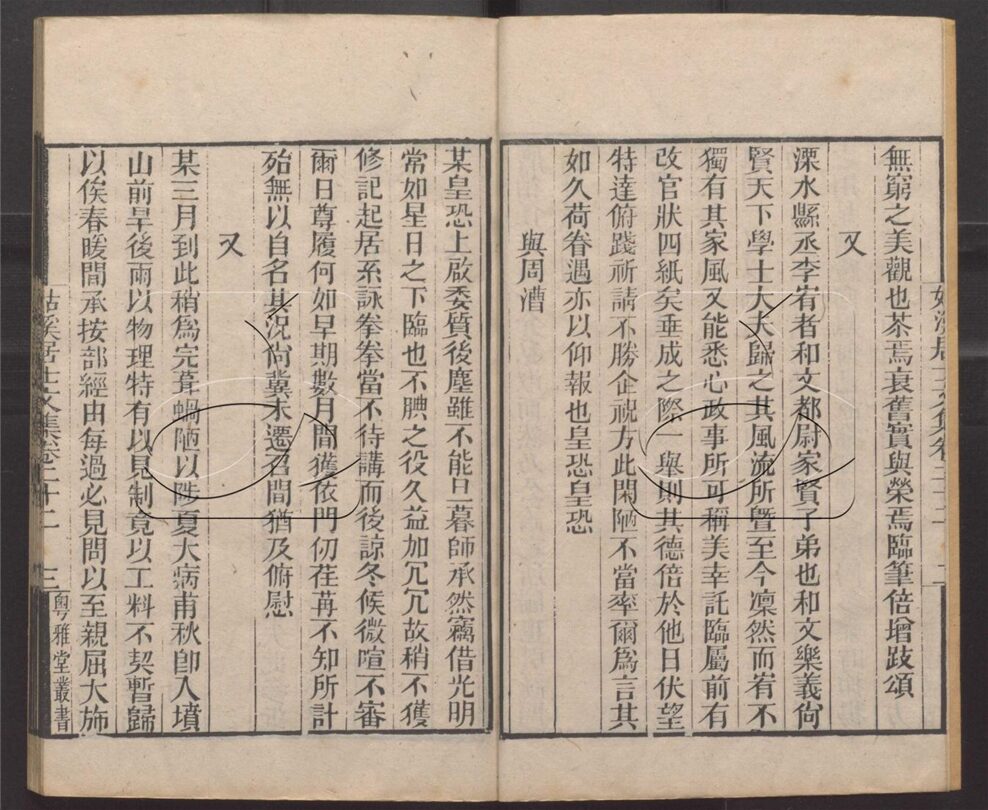 無窮之美觀也茶焉哀舊實與榮焉臨筆倍增跂頌
又
溧水縣丞李宥者和文都尉家賢子弟也和文樂義尙
賢天下學士大夫歸之其風流所曁至今凜然而宥不
獨有其家風又能悉心政事所可稱美幸託臨屬前有
改官狀四紙矣垂成之際一舉則其德倍於他日伏望
特達俯踐祈請不勝企祝方此閑陋不當率爾爲言其
如久荷眷遇亦以仰報也皇恐皇恐
與周漕
某皇恐上啟委質後塵雖不能旦暮師承然竊借光明
常如星日之下臨也不腆之役久益加冗冗故稍不獲
修記起居系詠拳拳當不待講而後諒冬候微暄不審
爾日尊履何如早期數月間獲依門仞荏苒不知所計
殆無以自名其況尙冀未遷召間猶及俯慰
又
某三月到此稍爲完葺蝸陋以陟夏大病甫秋卽入墳
山前旱後雨以物理特有以見制竟以工料不契暫歸
以俟春暖間承按部經由每過必見問以至親屈大斾
姑溪居士文集卷二十二 三 粵雅堂叢書